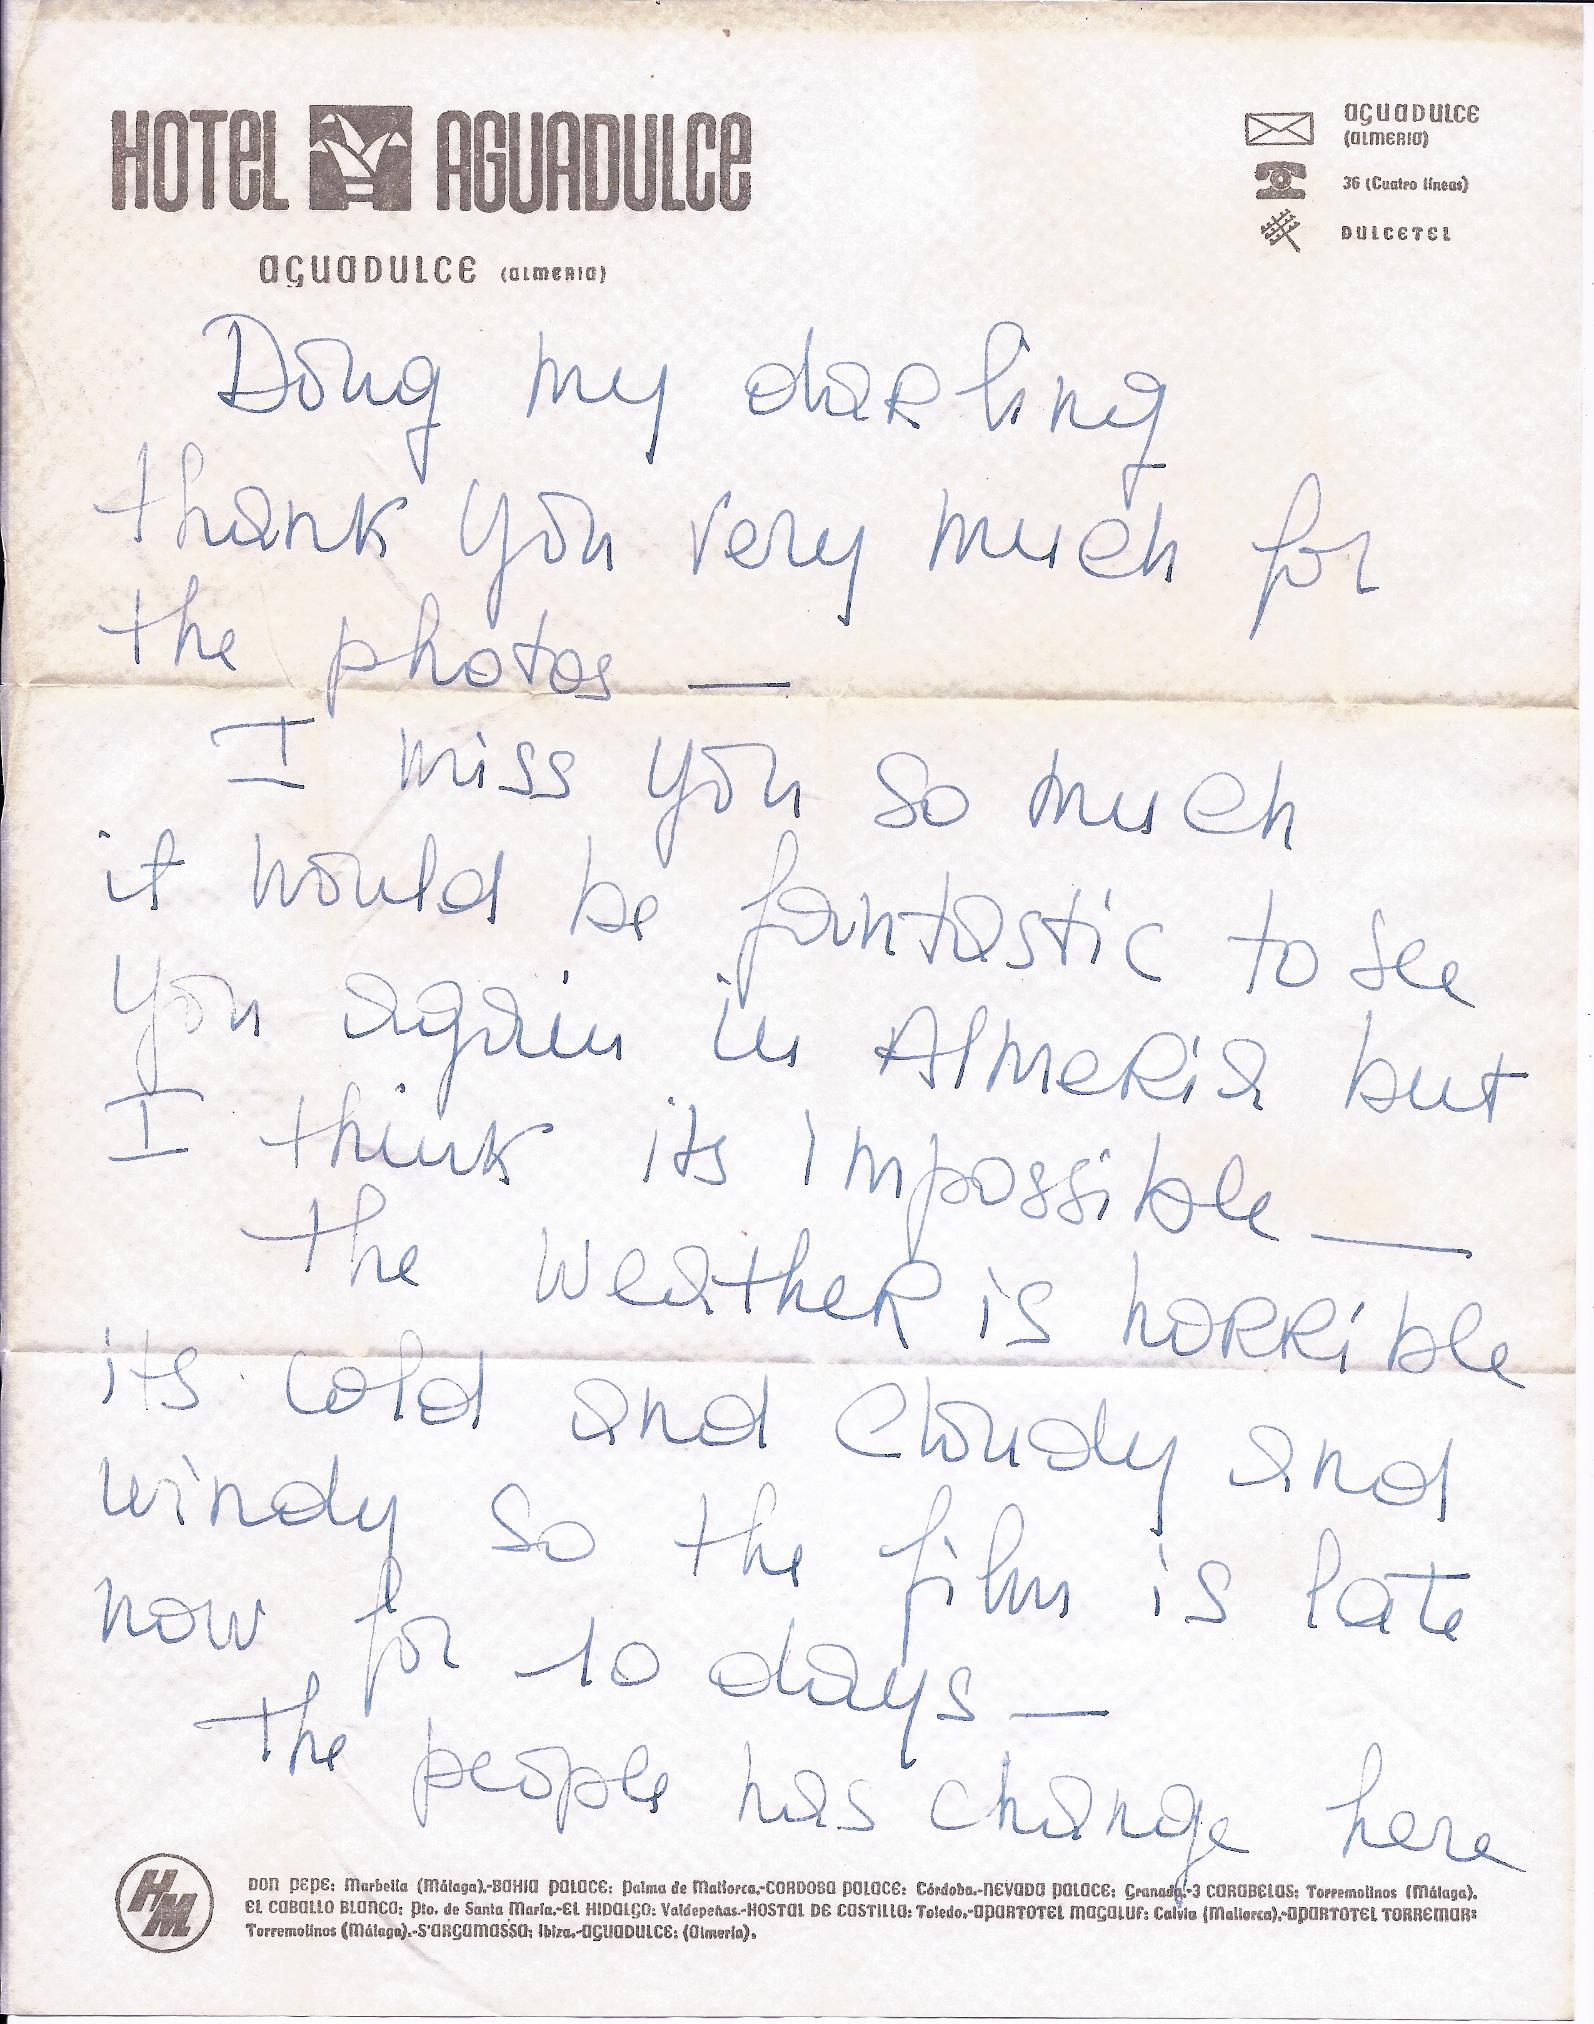 HOTEL AGUADULCE
AGUADULCE (ALMERIA)
AGUADULCE
(ALMERIA)
36 (Cuatro líneas)
DULCETEL
Doug my darling
thank you very much for
the photos —
I miss you so much
it would be fantastic to see
you again in Almeria but
I think its impossible —
the weather is horrible
its cold and cloudy and
windy so the film is late
now for 10 days —
The people has change here
HM
DON PEPE: Marbella (Málaga).-BAHIA PALACE: Palma de Mallorca.-CORDOBA PALACE: Córdoba.-NEVADA PALACE: Granada.-3 CARABELAS: Torremolinos (Málaga).
EL CABALLO BLANCO: Pto. de Santa María.-EL HIDALGO: Valdepeñas.-HOSTAL DE CASTILLA: Toledo.-APARTOTEL MAGALUF: Calvia (Mallorca).-APARTOTEL TORREMAR:
Torremolinos (Málaga).-S'ARGAMASSA: Ibiza.-AGUADULCE: (Almería).